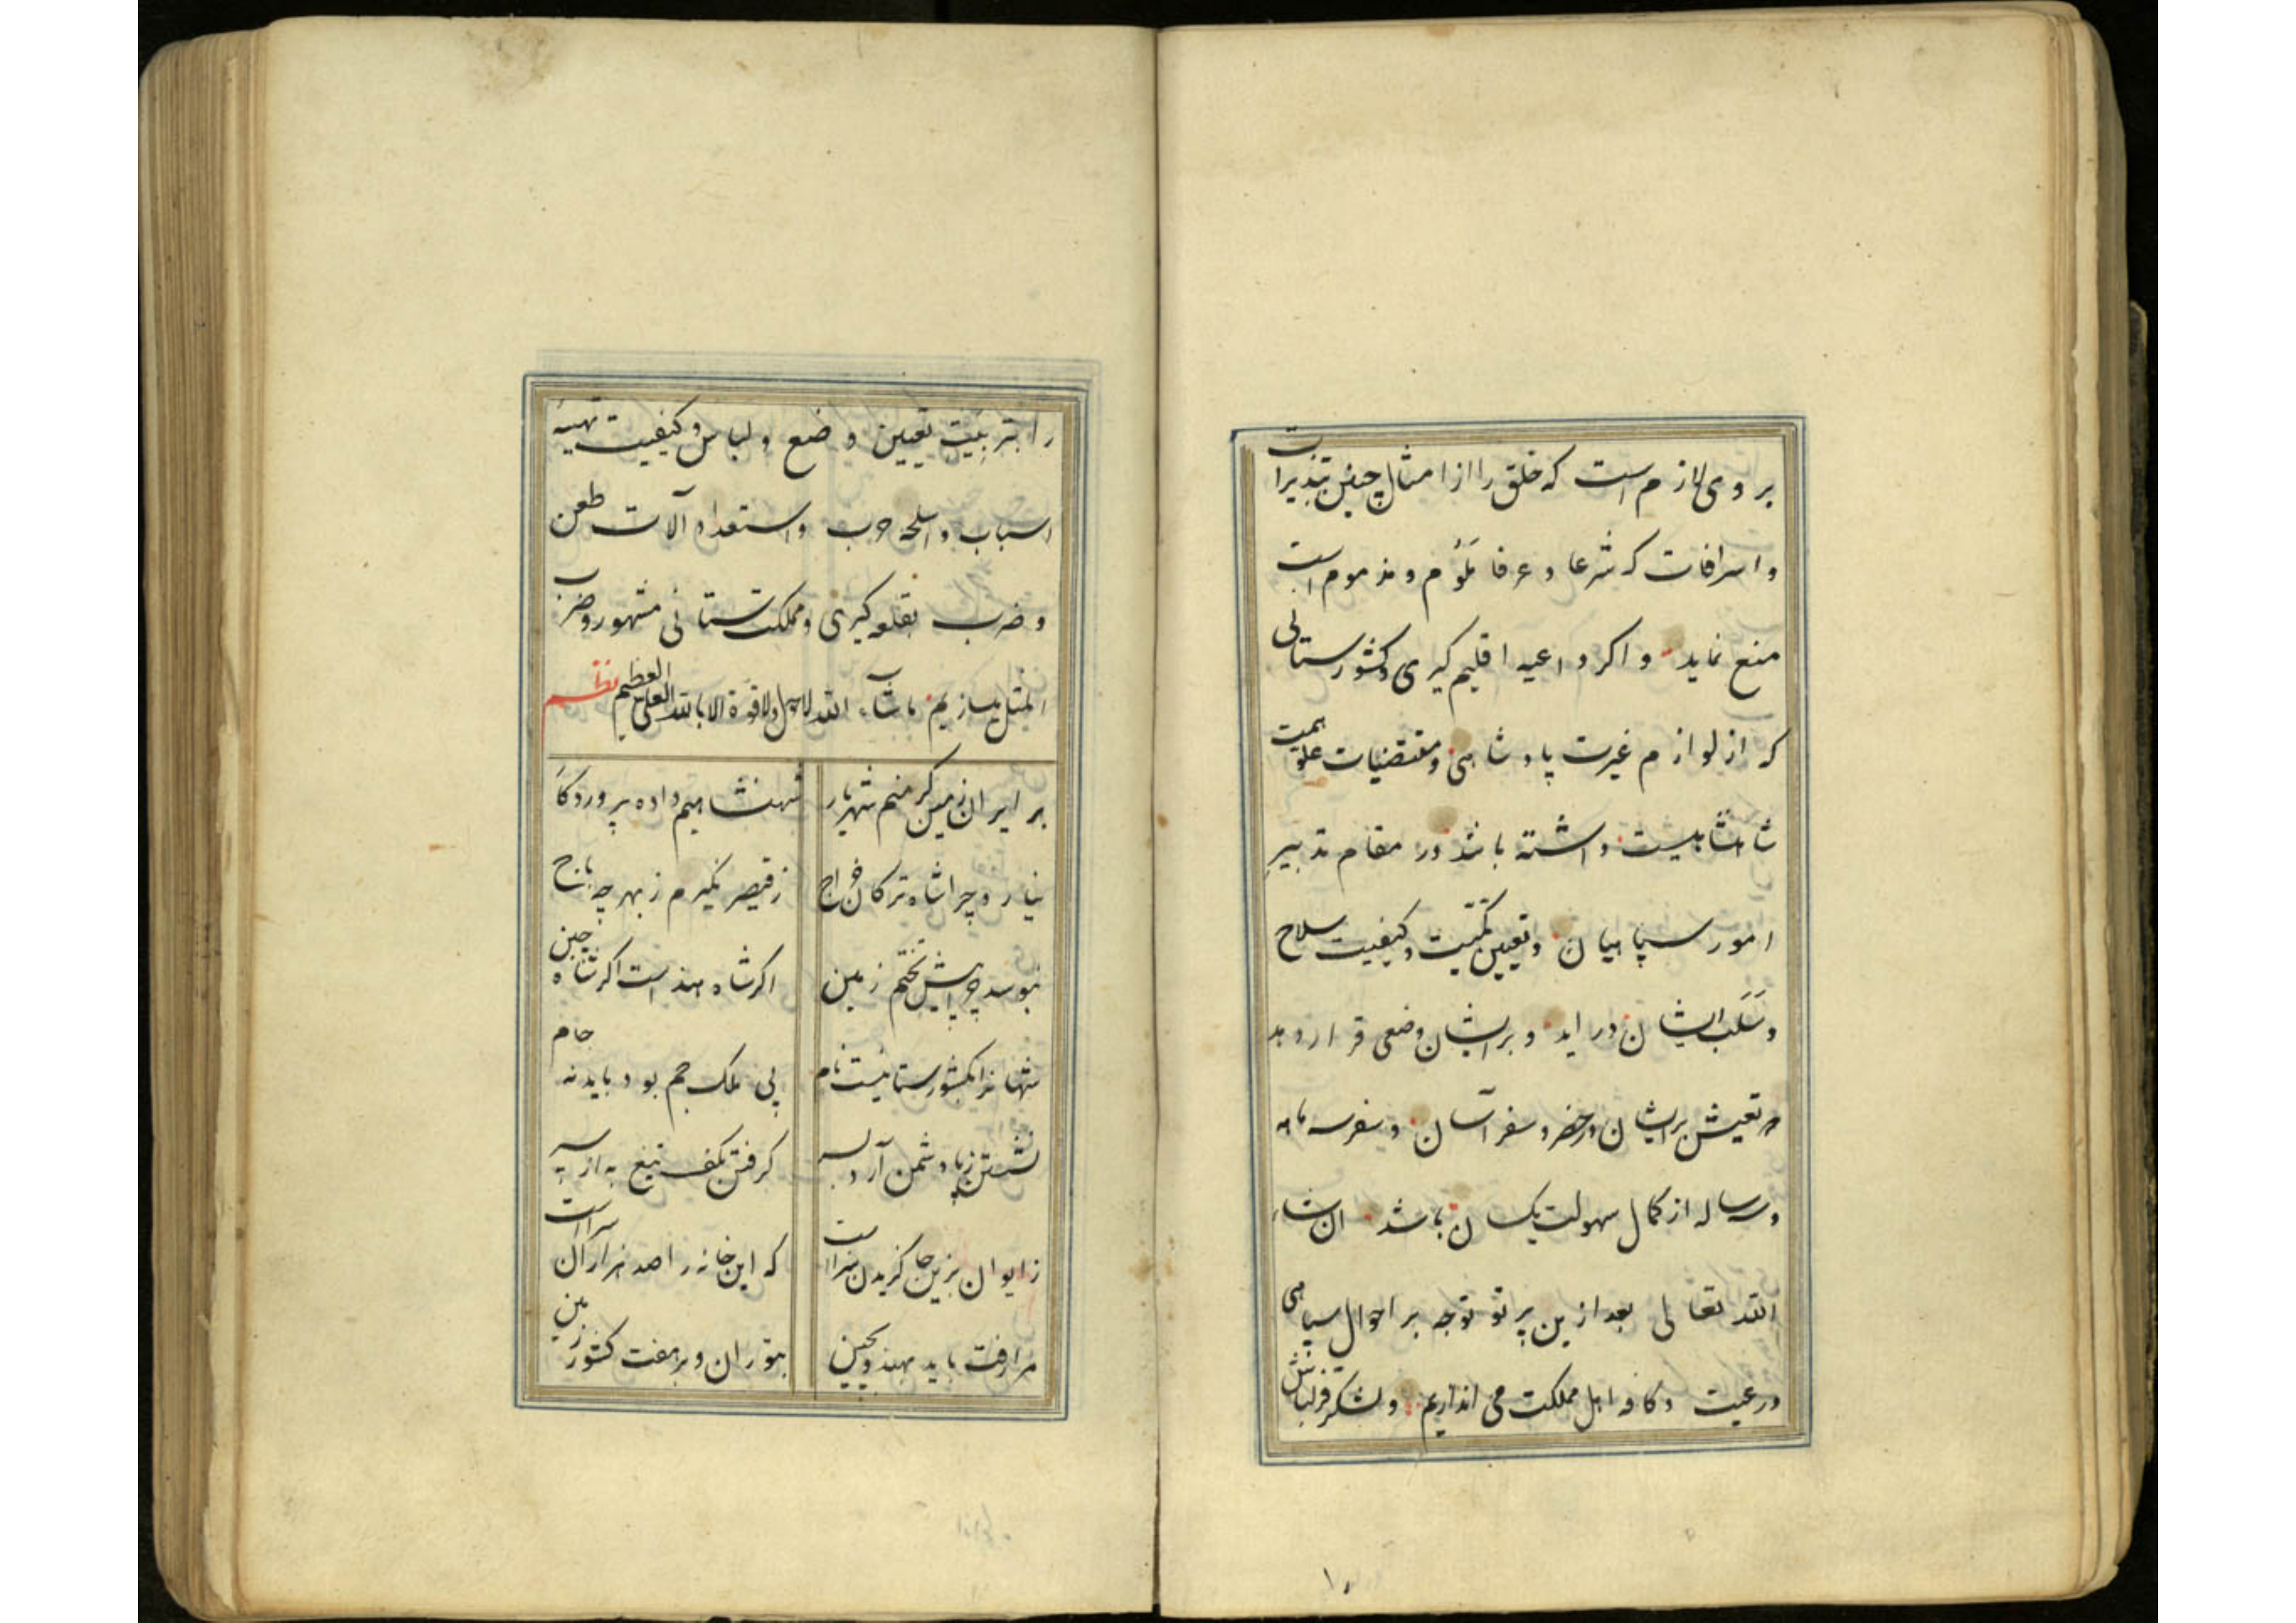 بر وی لازم است که خلق را از امثال چنین تبذیرات
و اسرافات که شرعا و عرفا ملوم و مذموم است
منع نماید و اکر داعیه اقلیم کیری و کشورستانی
که از لوازم غیرت پادشاهی و مقتضیات علو همت
شاهنشاهیست داشته باشد در مقام تدبیر
امور سپاهیان و تعیین کمیّت و کیفیت سلاح
و سَلَب ایشان در اید و بر ایشان وضعی قرار دهد
که تعیش بر ایشان در حضر و سفر آسان و سفر سه ماهه
و سه ساله از کمال سهولت یکسان باشد ان شاء
الله تعالی بعد ازین پرتو توجه بر احوال سپاهی
و رعیت و کافه اهل مملکت می اندازیم و لشکر قزلباش
را بتربیت تعیین وضع و لباس و کیفیت تهیهٔ
اسباب و اسلحه حرب و استعداد آلات طعن
و ضرب بقلعه کیری و مملکت ستانی مشهور و ضرب
المثل میسازیم ماشآء الله لاحول ولاقوة الا بالله العلی العظیم نظم
بر ایران زمین کر منم شهریار شهنشاهیم داده پروردکار
نیارد چرا شاه ترکان خراج ز قیصر نکیرم ز بهر چه باج
نبوسد چرا پیش تختم زمین اکر شاه هند است اکر شاه چین
شهانرا بکشورستانیست نام پی ملک جم بود باید نه جام
نشستن ز پا دشمن آرد بسر کرفتن بکف تیغ به از سپر
ز ایوان بزین جا کزیدن سزاست که این خانه را صد هزاران سراست
مرا رفت باید بهند و بچین بتوران و بر هفت کشور زمین